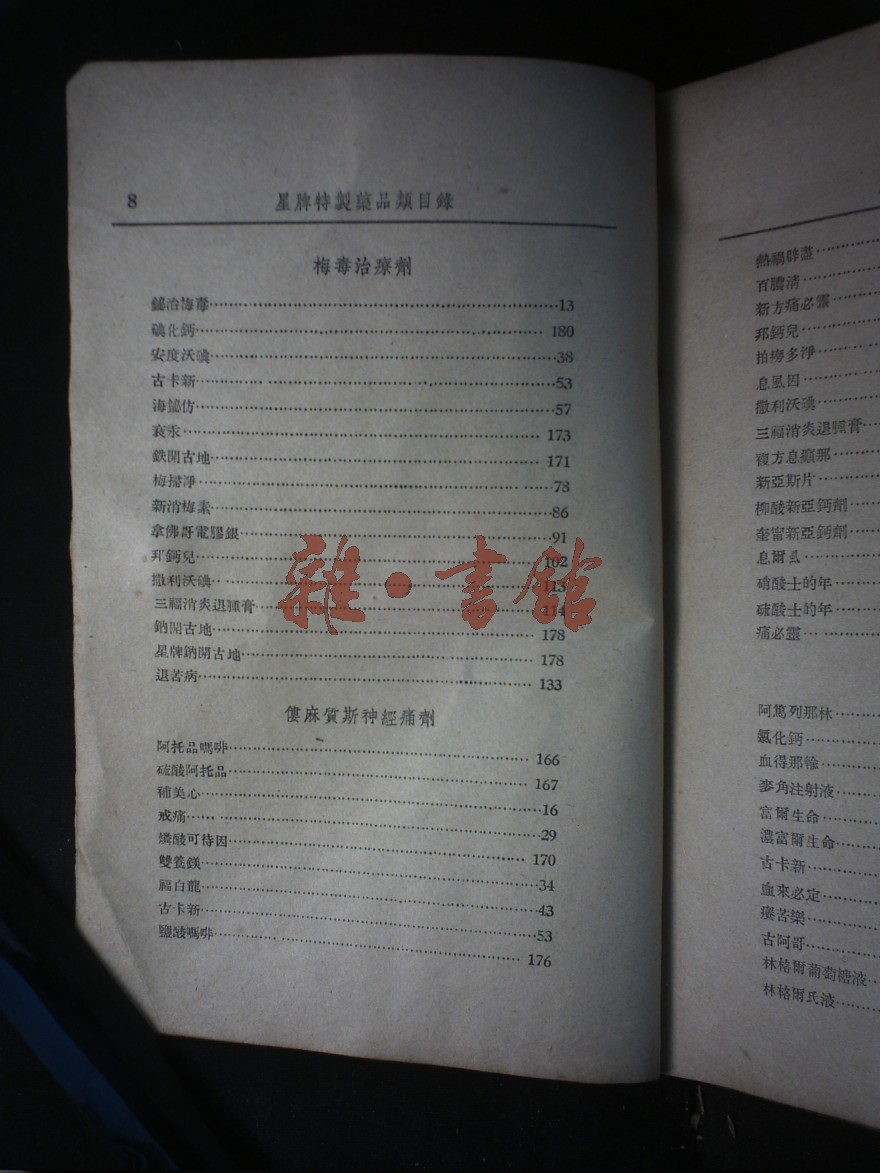 8
星牌特製藥品類目錄
梅毒治療劑
鉍治梅毒 13
碘化鈣 180
安度沃碘 38
古卡新 53
海鉍仿 57
汞 173
鉄開古地 171
梅掃凈 78
新消梅素 86
拿佛哥電膠銀 91
邦鈣兒 102
撒利沃碘 113
三福消炎退腫膏 114
鈉開古地 178
星牌鈉開古地 178
退苦病 133
僂麻質斯神經痛劑
阿托品嗎啡 166
硫酸阿托品 167
補美心 16
戒痛 29
燐酸可待因 170
雙養鎂 34
福白龍 43
古卡新 53
鹽酸嗎啡 176
雜·書館
百騰清
新方痛必靈
邦鈣兒
拍癆多淨
息風因
撒利沃碘
三福消炎退腫膏
複方息癲那
新亞斯片
柳酸新亞鈣劑
奎甯新亞鈣劑
息爾
硝酸士的年
硫酸士的年
痛必靈
阿篤列那林
氯化鈣
血得那輸
麥角注射液
富爾生命
濃富爾生命
古卡新
血來必定
瘘苦樂
古阿哥
林格爾葡萄糖液
林格爾氏液